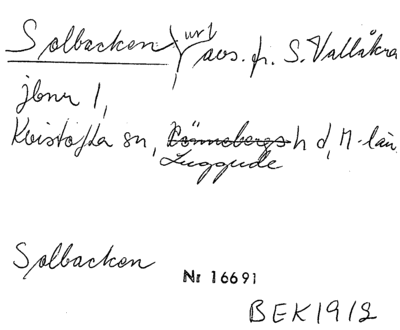 Solbacken nr1 avs. fr. S. Vallåkra
jbnr 1,
Kvistofta sn, Rönnebergs h d, M-län
Luggude
Solbacken
Nr 16691
BEK 1912